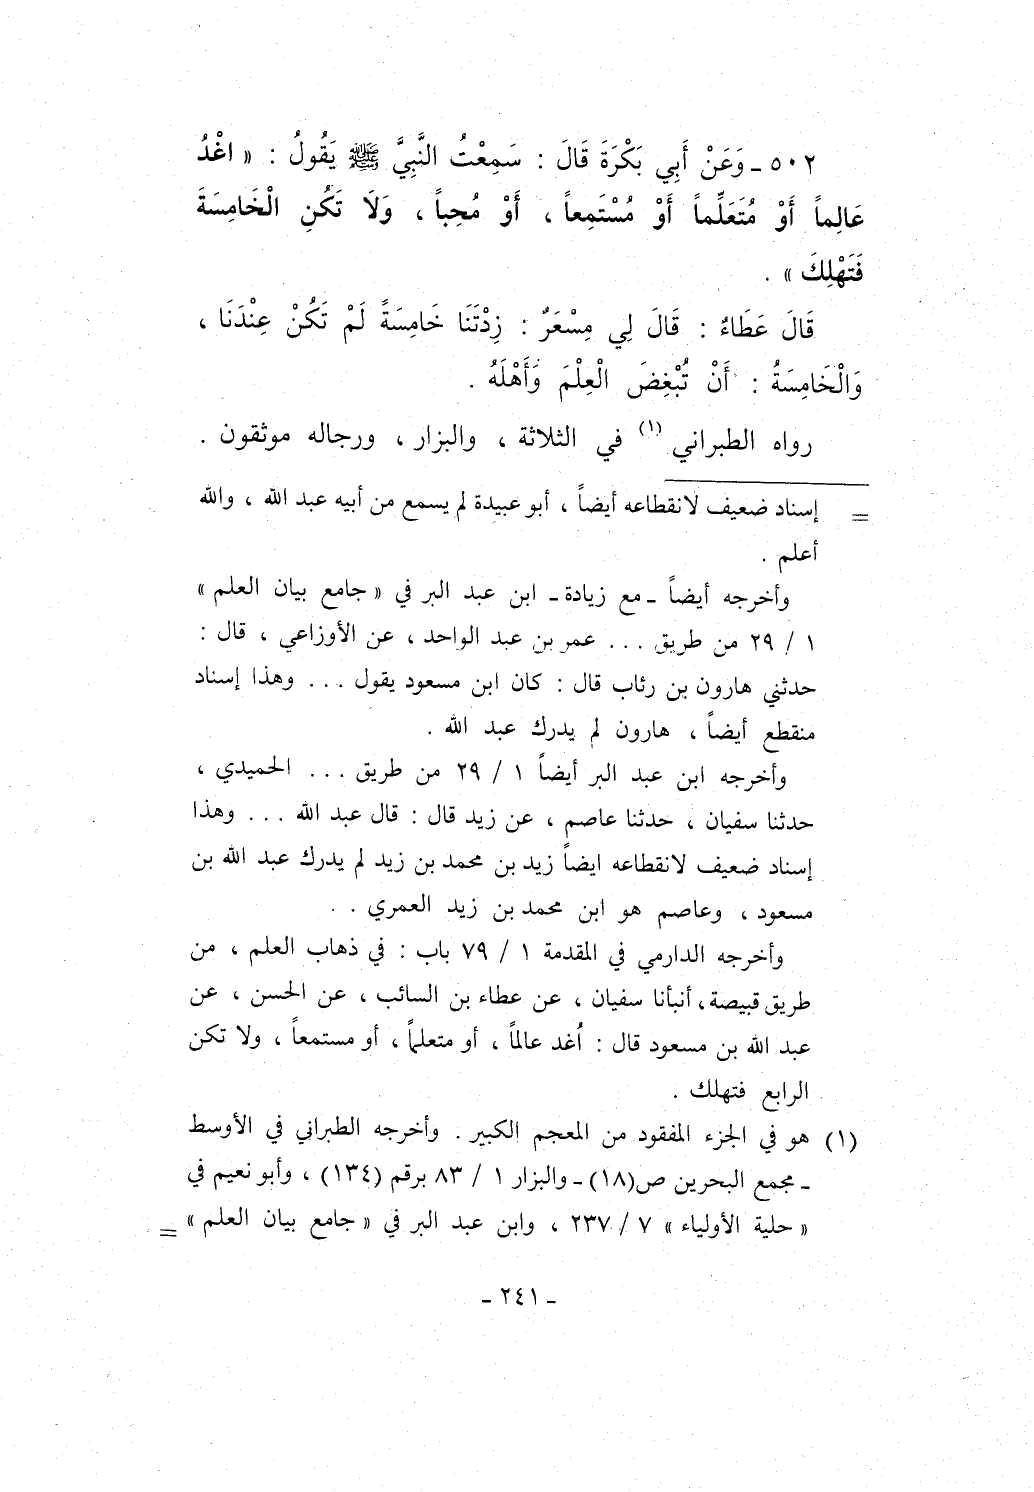 ٥٠٢ ـ وَعَنْ أَبِي بَكْرَةَ قَالَ : سَمِعْتُ النَّبِيَّ ﷺ يَقُولُ : « اغْدُ
عَالِماً أَوْ مُتَعَلِّماً أَوْ مُسْتَمِعاً ، أَوْ مُحِباً ، وَلَا تَكُنِ الْخَامِسَةَ
فَتَهْلِكَ » .
قَالَ عَطَاءٌ : قَالَ لِي مِسْعَرٌ : زِدْتَنَا خَامِسَةً لَمْ تَكُنْ عِنْدَنَا ،
وَالْخَامِسَةُ : أَنْ تُبْغِضَ الْعِلْمَ وَأَهْلَهُ .
رواه الطبراني (١) في الثلاثة ، والبزار ، ورجاله موثقون .
= إسناد ضعيف لانقطاعه أيضاً ، أبو عبيدة لم يسمع من أبيه عبد الله ، والله
أعلم .
وأخرجه أيضاً ـ مع زيادة ـ ابن عبد البر في « جامع بيان العلم »
١ / ٢٩ من طريق ... عمر بن عبد الواحد ، عن الأوزاعي ، قال :
حدثني هارون بن رئاب قال : كان ابن مسعود يقول ... وهذا إسناد
منقطع أيضاً ، هارون لم يدرك عبد الله .
وأخرجه ابن عبد البر أيضاً ١ / ٢٩ من طريق ... الحميدي ،
حدثنا سفيان ، حدثنا عاصم ، عن زيد قال : قال عبد الله ... وهذا
إسناد ضعيف لانقطاعه ايضاً زيد بن محمد بن زيد لم يدرك عبد الله بن
مسعود ، وعاصم هو ابن محمد بن زيد العمري . .
وأخرجه الدارمي في المقدمة ١ / ٧٩ باب : في ذهاب العلم ، من
طريق قبيصة ، أنبأنا سفيان ، عن عطاء بن السائب ، عن الحسن ، عن
عبد الله بن مسعود قال : اُغد عالماً ، أو متعلماً ، أو مستمعاً ، ولا تكن
الرابع فتهلك .
(١) هو في الجزء المفقود من المعجم الكبير . وأخرجه الطبراني في الأوسط
ـ مجمع البحرين ص(١٨) ـ والبزار ١ / ٨٣ برقم (١٣٤) ، وأبو نعيم في
« حلية الأولياء » ٧ / ٢٣٧ ، وابن عبد البر في « جامع بيان العلم » =
ـ ٢٤١ ـ